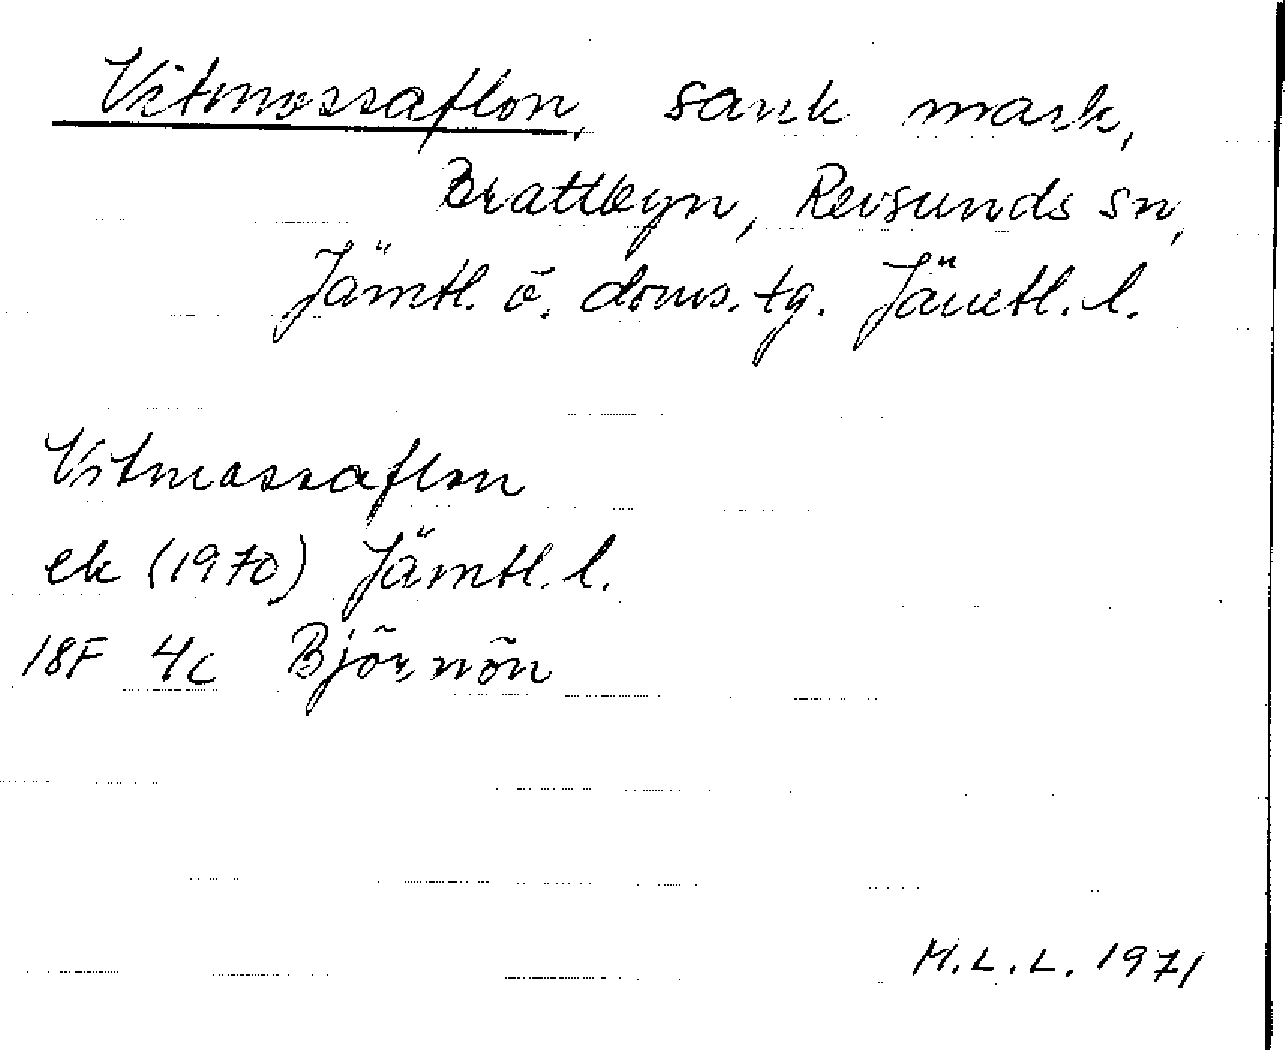 Vitmossaflon, sank mark,
Brattbyn, Revsunds sn,
Jämtl. ö. doms. tg. Jämtl. l.
Vitmossaflon
ek (1970) Jämtl. l.
18F 4c Björnön
M.L.L. 1971